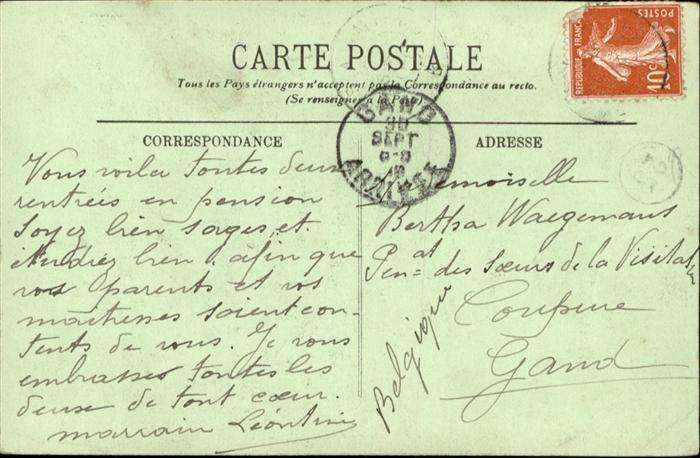 CARTE POSTALE
Tous les Pays étrangers n'acceptent pas la Correspondance au recto.
(Se renseigner à la Poste)
CORRESPONDANCE
Vous voila toutes deux
rentrées en pension
soyez bien sages, et
étudiez bien, afin que
vos parents et vos
maitresses soient con-
tents de vous. Je vous
embrasses toutes les
deuse de tout cœur.
marrain Léontine
ADRESSE
Mademoiselle
Bertha Waegemans
Penat des Sœurs de la Visitat
Coupure
Gand
Belgique
GAND
30
SEPT
8-9
ARRIVEE
REPUBLIQUE FRANC
POSTES
10c